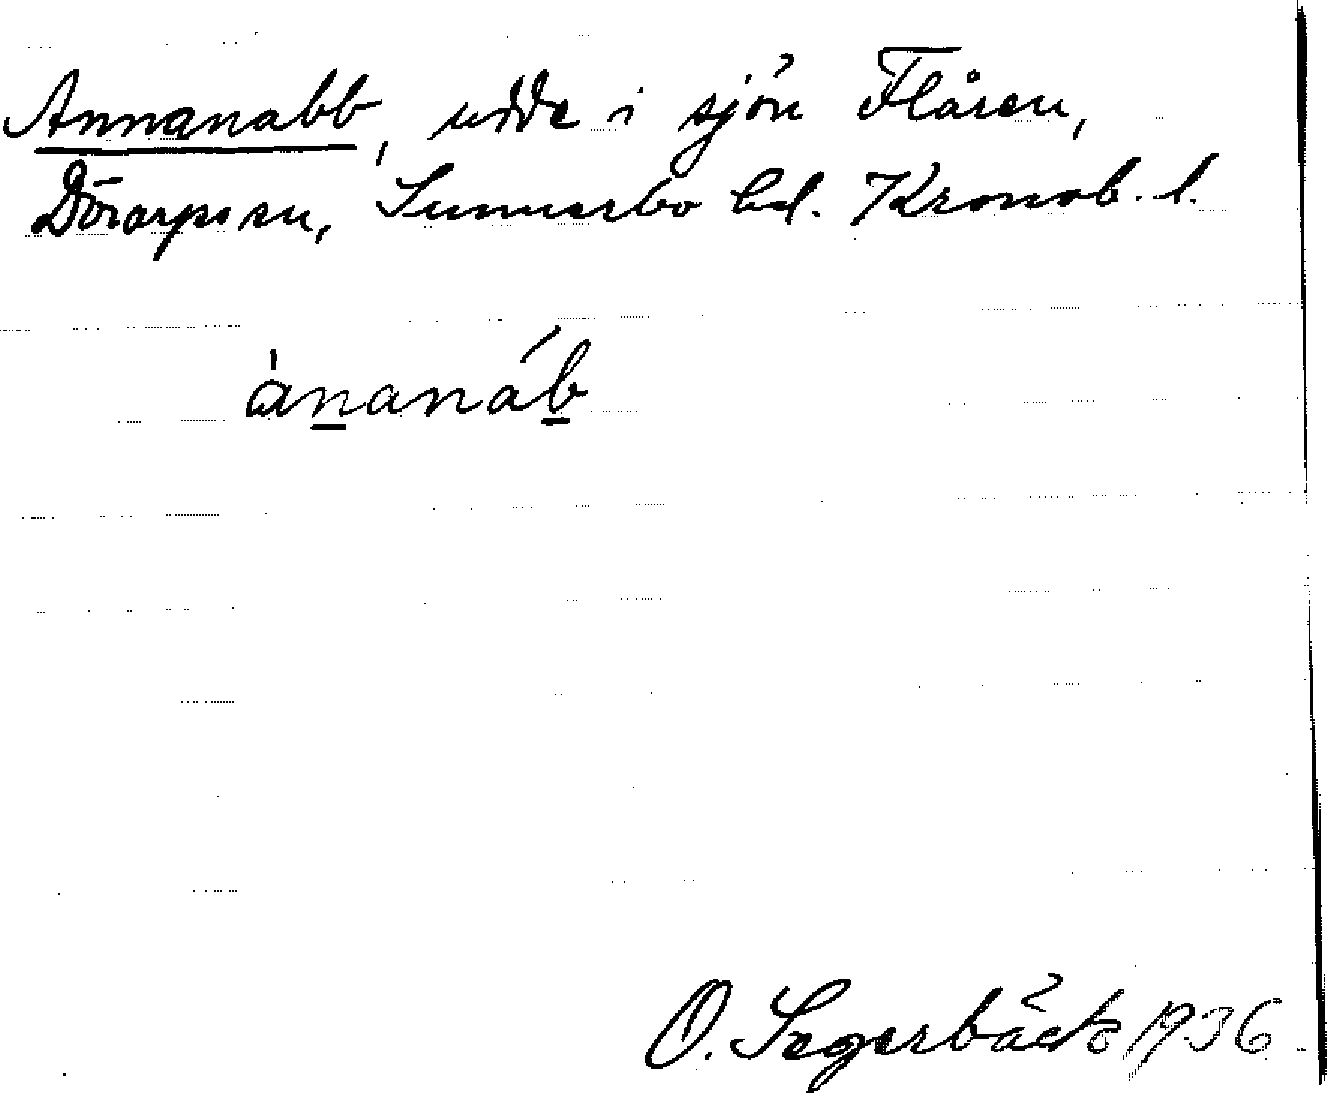 Annanabb, udde i sjön Flåren,
Dörarps sn, Sunnerbo hd. Kronob. l.
ànanáb
O. Segerbäck 1936